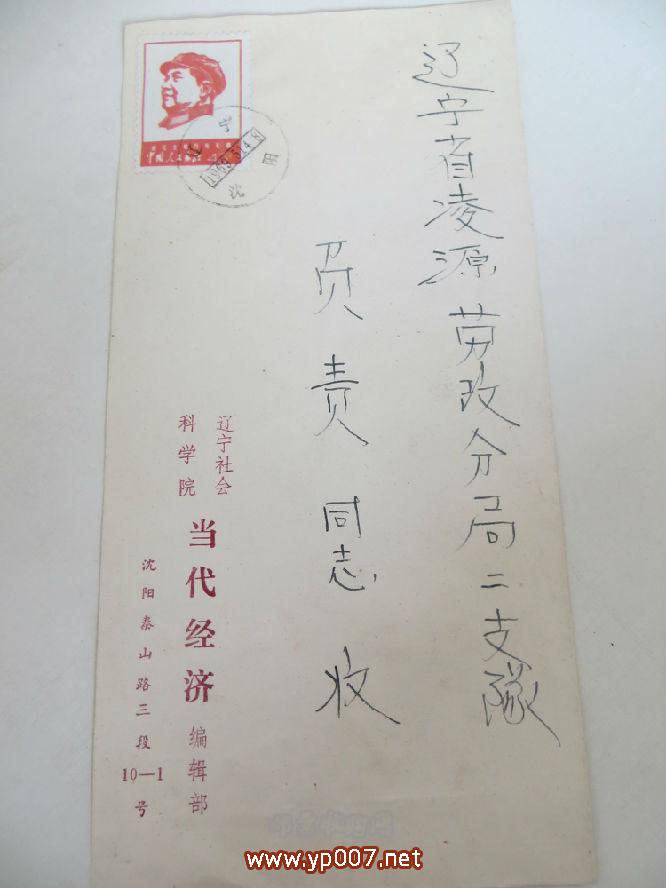 辽宁省凌源劳改分局二支隊
负责同志收
中国人民邮政
辽宁
沈阳
辽宁社会
科学院
当代经济编辑部
沈阳泰山路三段
10—1
号
www.yp007.net